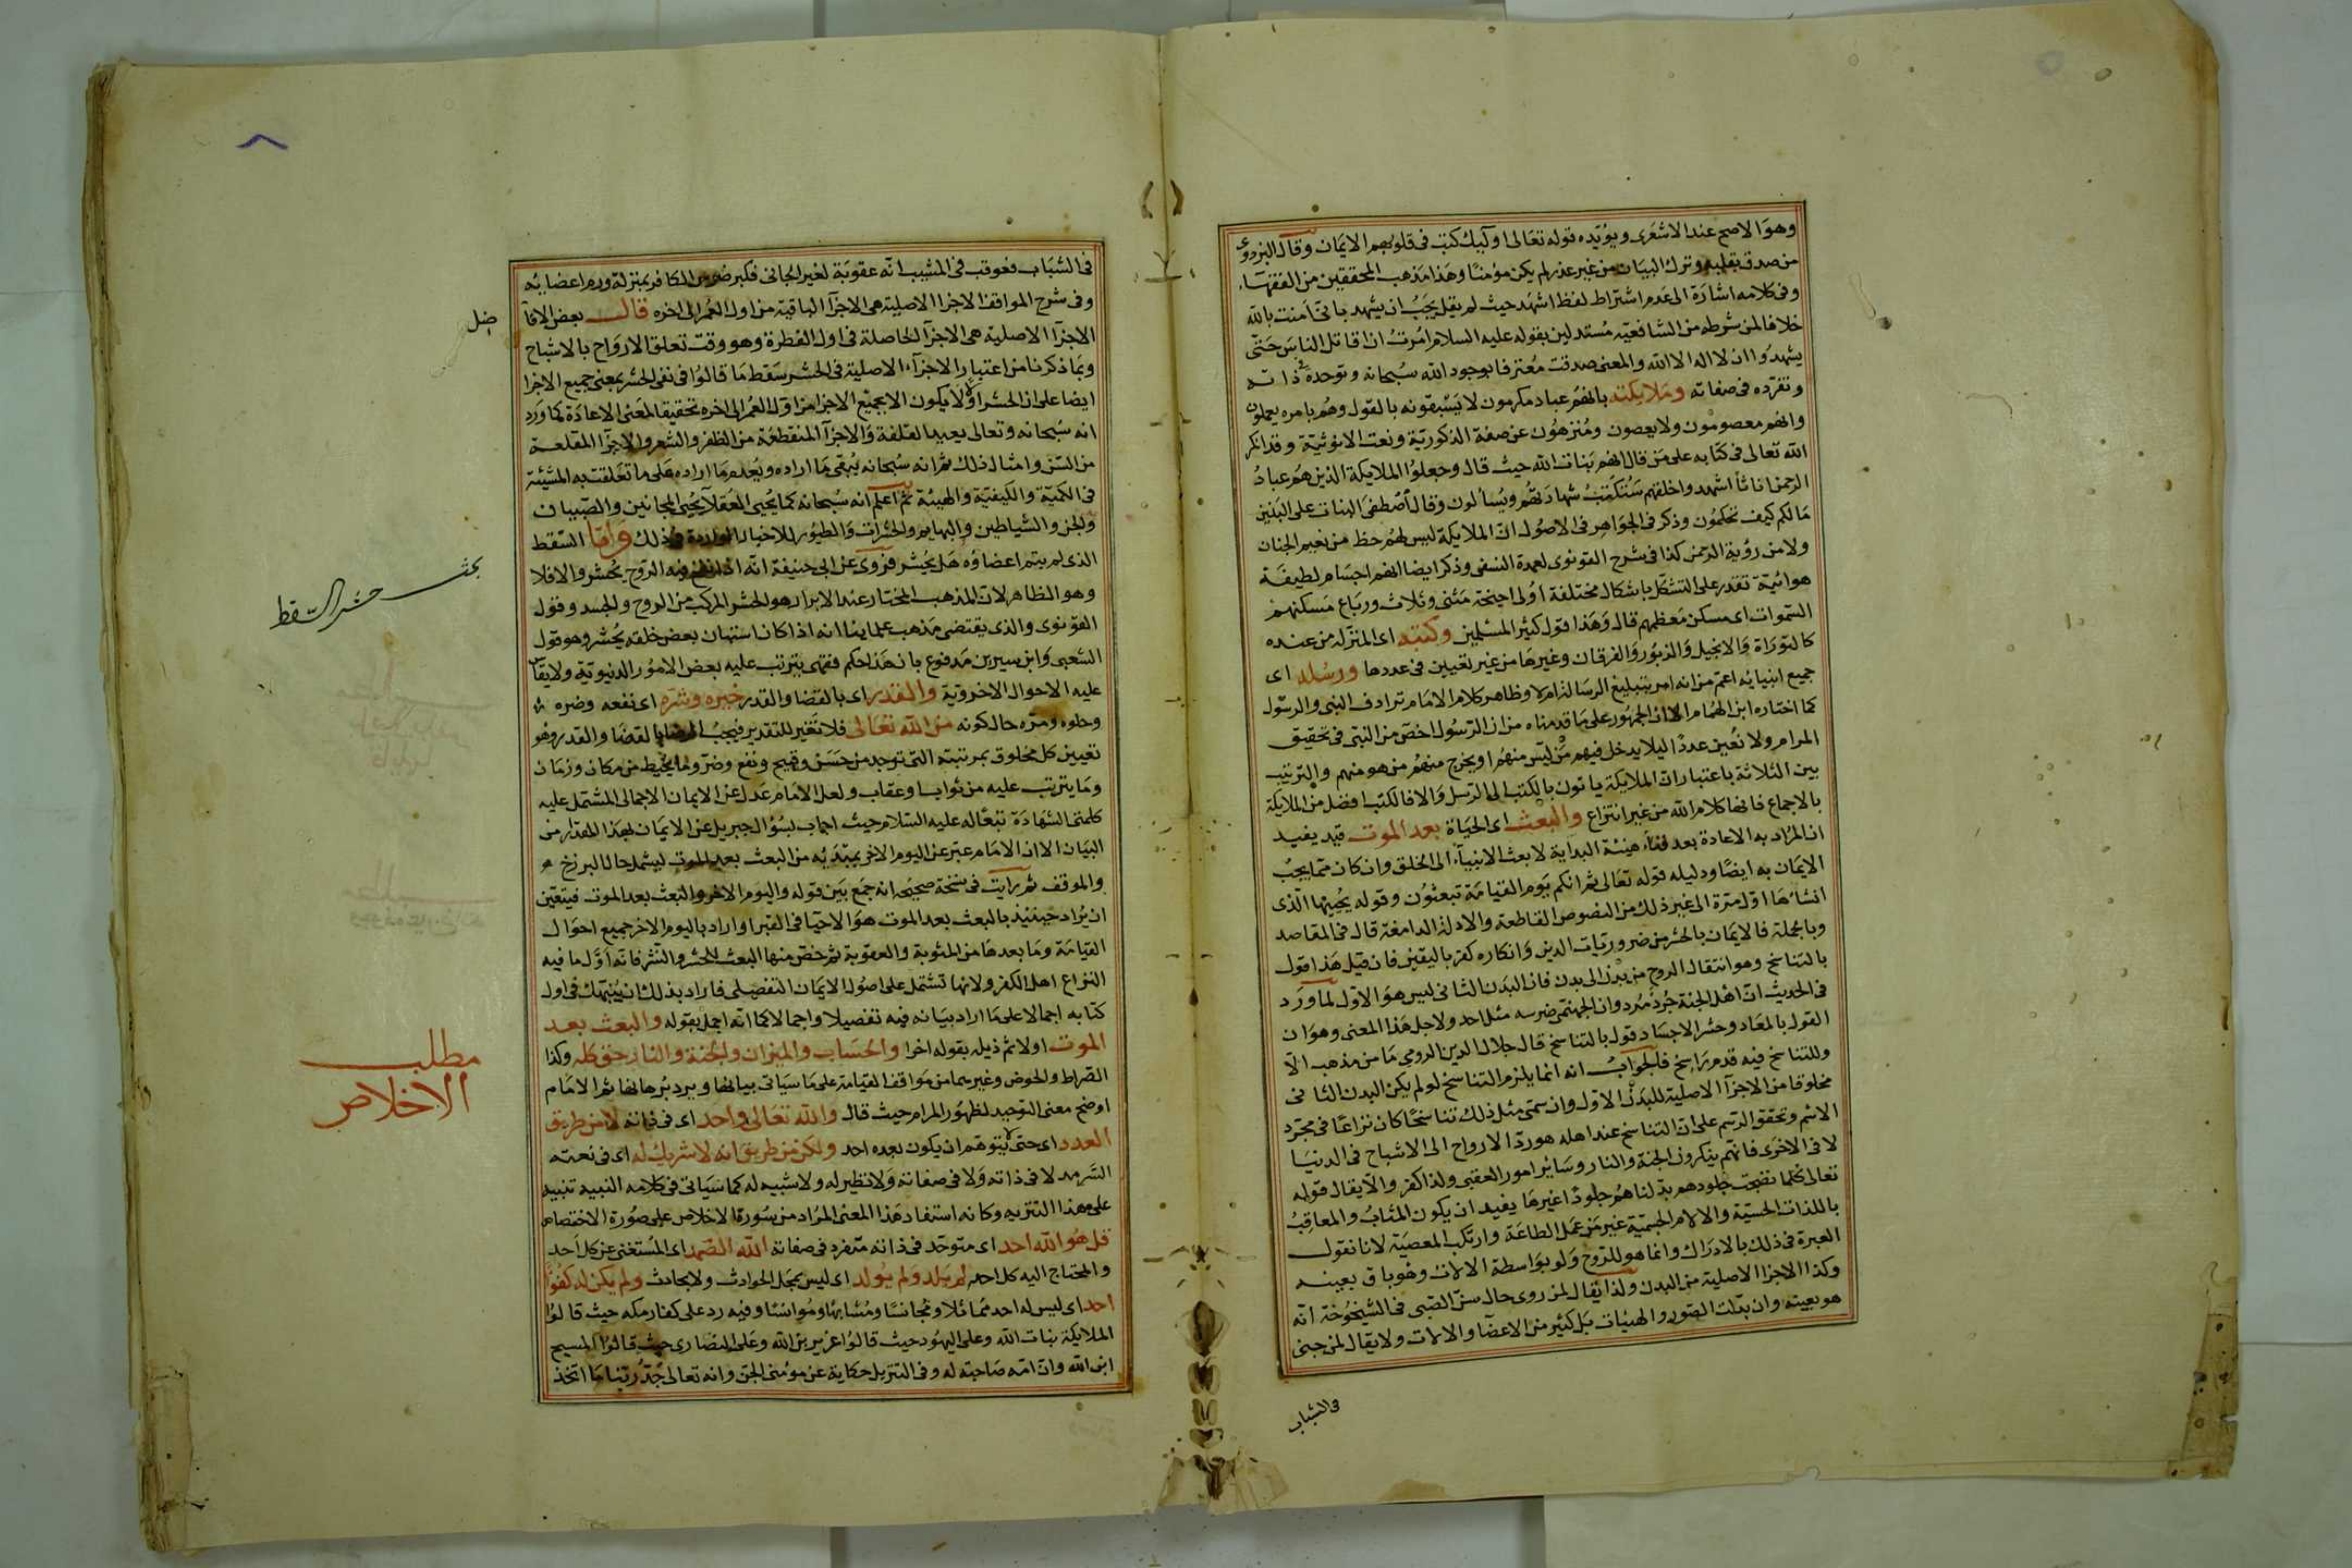 وهو الاصح عند الاشعرى ويؤيده قوله تعالى اولئك كتب فى قلوبهم الايمان وقال البزدوى
من صدق بقلبه وترك البيان من غير عذر لم يكن مؤمنا وهذا مذهب المحققين من الفقهاء
وفى كلامه اشارة الى عدم اشتراط لفظ اشهد حيث لم يقل يجب ان يشهد بانى آمنت بالله
خلافا لمن شرطه من الشافعية مستدلين بقوله عليه السلام امرت ان اقاتل الناس حتى
يشهدوا ان لا اله الا الله والمعنى صدقت معترفا بوجود الله سبحانه وتوحده فى ذاته
وتفرده فى صفاته وملايكته بانهم عباد مكرمون لا يسبقونه بالقول وهم بامره يعملون
وانهم معصومون ولا يعصون ومنزهون عن صفة الذكورية ونعت الانوثية وقد انكر
الله تعالى فى كتابه على من قال انهم بنات الله حيث قال وجعلوا الملايكة الذين هم عباد
الرحمن اناثا اشهدوا خلقهم ستكتب شهادتهم ويسألون وقال أصطفى البنات على البنين
مالكم كيف تحكمون وذكر فى الجواهر فى الاصول ان الملايكة ليس لهم حظ من نعيم الجنان
ولا من رؤية الرحمن كذا فى شرح القونوى لعمدة النسفى وذكر ايضا انهم اجسام لطيفة
هوائية تقدر على التشكل باشكال مختلفة اولى اجنحة مثنى وثلاث ورباع مسكنهم
السموات اى مسكن معظمهم قال وهذا قول كثير المسلمين وكتبه اى المنزله من عنده
كالتوراة والانجيل والزبور والفرقان وغيرها من غير تعيين فى عددها ورسله اى
جميع انبيائه اعم من انه امر بتبليغ الرسالة ام لا وظاهر كلام الامام ترادف النبى والرسول
كما اختاره ابن الهمام الا ان الجمهور على ما قدمناه من ان الرسول اخص من النبى فى تحقيق
المرام ولا نعين عددا ليلا يدخل فيهم من ليس منهم او يخرج منهم من هو منهم والترتيب
بين الثلاثة باعتبار ان الملايكة ياتون بالكتب الى الرسل والا فالكتب افضل من الملايكة
بالاجماع فانها كلام الله من غير انتزاع والبعث اى الحياة بعد الموت قيد يفيد
ان المراد به الاعادة بعد فناء هيئة البداية لا بعث الانبياء الى الخلق وان كان مما يجب
الايمان به ايضا ودليله قوله تعالى ثم انكم يوم القيامة تبعثون وقوله يحييها الذى
انشأها اول مرة الى غير ذلك من النصوص القاطعة والادلة الدامغة قال فى المقاصد
وبالجملة فالايمان بالحشر من ضروريات الدين وانكاره كفر باليقين فان قيل هذا قول
بالتناسخ وهو انتقال الروح من بدن الى بدن فان البدن الثانى ليس هو الاول لما ورد
فى الحديث ان اهل الجنة جرد مرد وان الجهنمى ضرسه مثل احد ولاجل هذا المعنى وهو ان
القول بالمعاد وحشر الاجساد قول بالتناسخ قال جلال الدين الرومى ما من مذهب الا
وللتناسخ فيه قدم راسخ فالجواب انه انما يلزم التناسخ لو لم يكن البدن الثانى
مخلوقا من الاجزآ الاصلية للبدن الاول وان سمى مثل ذلك تناسخا كان نزاعا فى مجرد
الاسم وتحقق الرسم على ان التناسخ عند اهله هو رد الارواح الى الاشباح فى الدنيا
لا فى الاخرى فانهم ينكرون الجنة والنار وسائر امور العقبى ولذا كفر والا يقال قوله
تعالى كلما نضجت جلودهم بدلناهم جلودا غيرها يفيد ان يكون المثاب والمعاقب
باللذات الحسية والالام الجسمية غير من عمل الطاعة وارتكب المعصية لانا نقول
العبرة فى ذلك بالادراك وانما هو للروح ولو بواسطة الالات وهو باق بعينه
وكذا الاجزا الاصلية من البدن ولذا يقال لمن روى حال سن الصبى فى الشيخوخة انه
هو بعينه وان بدلت الصور والهيئات بل كثير من الاعضآ والالات ولا يقال لمن جنى
فى الشباب
فى الشباب فعوقب فى المشيب انه عقوبة لغير الجانى فكبر ضرس الكافر بمنزلة ورم اعضائه
وفى شرح المواقف الاجزا الاصلية هى الاجزآ الباقية من اول العمر الى اخره قال بعض الافا
ضل
الاجزآ الاصلية هى الاجزآ الحاصلة فى اول الفطرة وهو وقت تعلق الارواح بالاشباح
وبما ذكرنا من اعتبار الاجزآء الاصلية فى الحشر سقط ما قالوا فى نفى الحشر بمعنى جميع الاجزا
ايضا على ان الحشر اولا لا يكون الا بجميع الاجزا من اول العمر الى اخره تحقيقا لمعنى الاعادة كما ورد
انه سبحانه وتعالى يعيد القلفة والاجزآ المنقطعة من الظفر والشعر والاجزآ المقلعة
من السن وامثال ذلك ثم انه سبحانه يبقى ما اراده ويعدم ما اراده على ما تعلقت به المشيئة
فى الكمية والكيفية والهيئة ثم اعلم انه سبحانه كما يحيى العقلآ يحيى المجانين والصبيان
والجن والشياطين والبهايم والحشرات والطيور للاخبار الواردة فى ذلك واما السقط
الذى لم يتم اعضاؤه هل يحشر فروى عن ابى حنيفة انه اذا نفخ فيه الروح يحشر والا فلا
بحث حشر السقط
وهو الظاهر لان المذهب المختار عند الابرار هو الحشر المركب من الروح والجسد وقول
القونوى والذى يقتضى مذهب علماينا انه اذا كان استبان بعض خلقه يحشر وهو قول
الشعبى وابن سيرين مدفوع بان هذا حكم فقهى يترتب عليه بعض الامور الدنيوية ولا يقاس
عليه الاحوال الاخروية والقدر اى بالقضا والقدر خيره وشره اى نفعه وضره
وحلوه ومره حال كونه من الله تعالى فلا تغير للتقدير فيجب الرضا بالقضا والقدر وهو
تعيين كل مخلوق بمرتبته التى توجد من حسن وقبيح ونفع وضر وما يحيط من مكان وزمان
وما يترتب عليه من ثواب وعقاب ولعل الامام عدل عن الايمان الاجمالى المشتمل عليه
كلمتى الشهادة تبعا له عليه السلام حيث اجاب لسؤال جبريل عن الايمان بهذا المقدار من
البيان الا ان الامام عبر عن اليوم الاخر بمبتدئه من البعث بعد الموت ليشمل حال البرزخ
والموقف ثم رايت فى نسخة صحيحة انه جمع بين قوله واليوم الاخر والبعث بعد الموت فيتعين
ان يراد حينئذ بالبعث بعد الموت هو الاحيآ فى القبر او اراد باليوم الاخر جميع احوال
القيامة وما بعدها من المثوبة والعقوبة ثم خص منها البعث للحشر والنشر فانه اول ما فيه
النزاع اهل الكفر ولانها تشتمل على اصول الايمان التفصيلى فاراد بذلك ان ينبهك فى اول
كتابه اجمالا على ما اراد بيانه فيه تفصيلا واجمالا كما انه اجمل بقوله والبعث بعد
الموت اولا ثم ذيله بقوله اخرا والحساب والميزان والجنة والنار حق كله وكذا
مطلب
الاخلاص
الصراط والحوض وغيرهما من مواقف القيامة على ما سياتى بيانها ويرد برهانها ثم الامام
اوضح معنى التوحيد لظهور المرام حيث قال والله تعالى واحد اى فى ذاته لا من طريق
العدد اى حتى لا يتوهم ان يكون بعده احد ولكن من طريق انه لا شريك له اى فى نعته
السرمد لا فى ذاته ولا فى صفاته ولا نظير له ولا شبيه له كما سياتى فى كلامه النبيه تنبيه
على هذا التنزيه وكانه استفاد هذا المعنى المراد من سورة الاخلاص على صورة الاختصاص
قل هو الله احد اى متوحد فى ذاته متفرد فى صفاته الله الصمد اى المستغنى عن كل احد
والمحتاج اليه كل احد لم يلد ولم يولد اى ليس بمحل الحوادث ولا بحادث ولم يكن له كفوا
احد اى ليس له احد مماثلا ومجانسا ومشابها ومؤانسا وفيه رد على كفار مكه حيث قالوا
الملايكة بنات الله وعلى اليهود حيث قالوا عزير بن الله وعلى النصارى حيث قالوا المسيح
ابن الله وان امه صاحبة له وفى التنزيل حكاية عن مؤمنى الجن وانه تعالى جد ربنا ما اتخذ